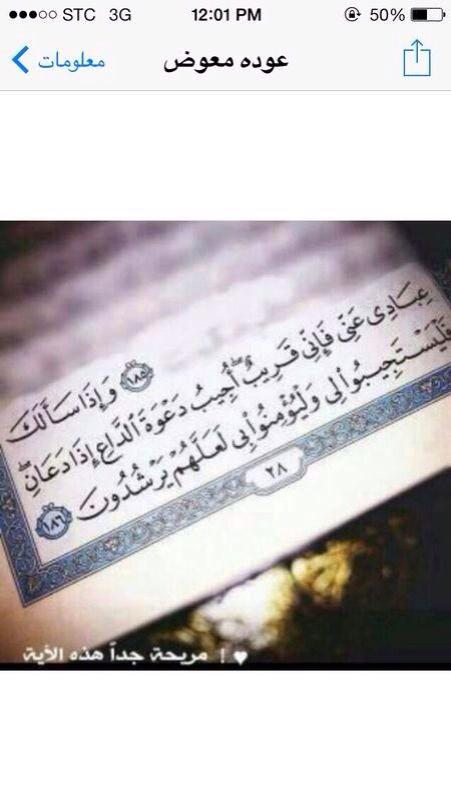 STC 3G 12:01 PM 50%
معلومات عوده معوض
﴿١٨٥﴾ وَإِذَا سَأَلَكَ
عِبَادِى عَنِّى فَإِنِّى قَرِيبٌ ۖ أُجِيبُ دَعْوَةَ ٱلدَّاعِ إِذَا دَعَانِ ۖ
فَلْيَسْتَجِيبُوا۟ لِى وَلْيُؤْمِنُوا۟ بِى لَعَلَّهُمْ يَرْشُدُونَ ﴿١٨٦﴾
٢٨
♥ ! مريحة جداً هذه الأية